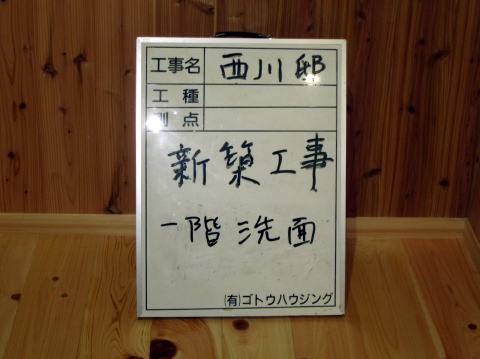 工事名 西川邸
工種
測点
新築工事
一階洗面
(有)ゴトウハウジング